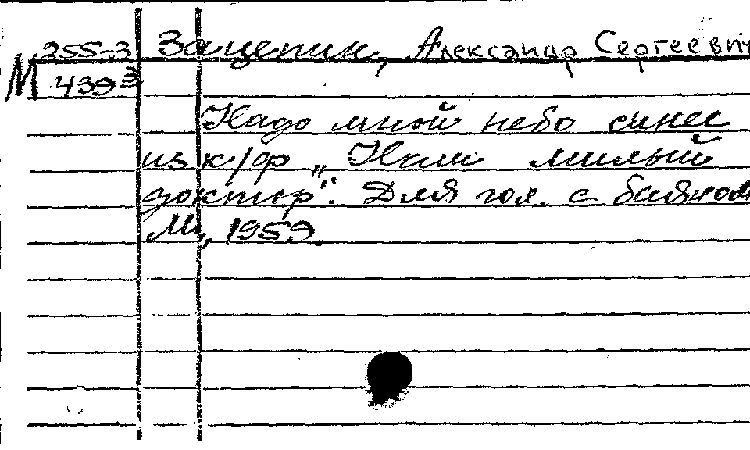 255-3 Зацепин, Александр Сергеевич
М 439
Надо мной небо синее
из к/ф „Наш милый
доктор". Для гол. с баяном
М., 1959.